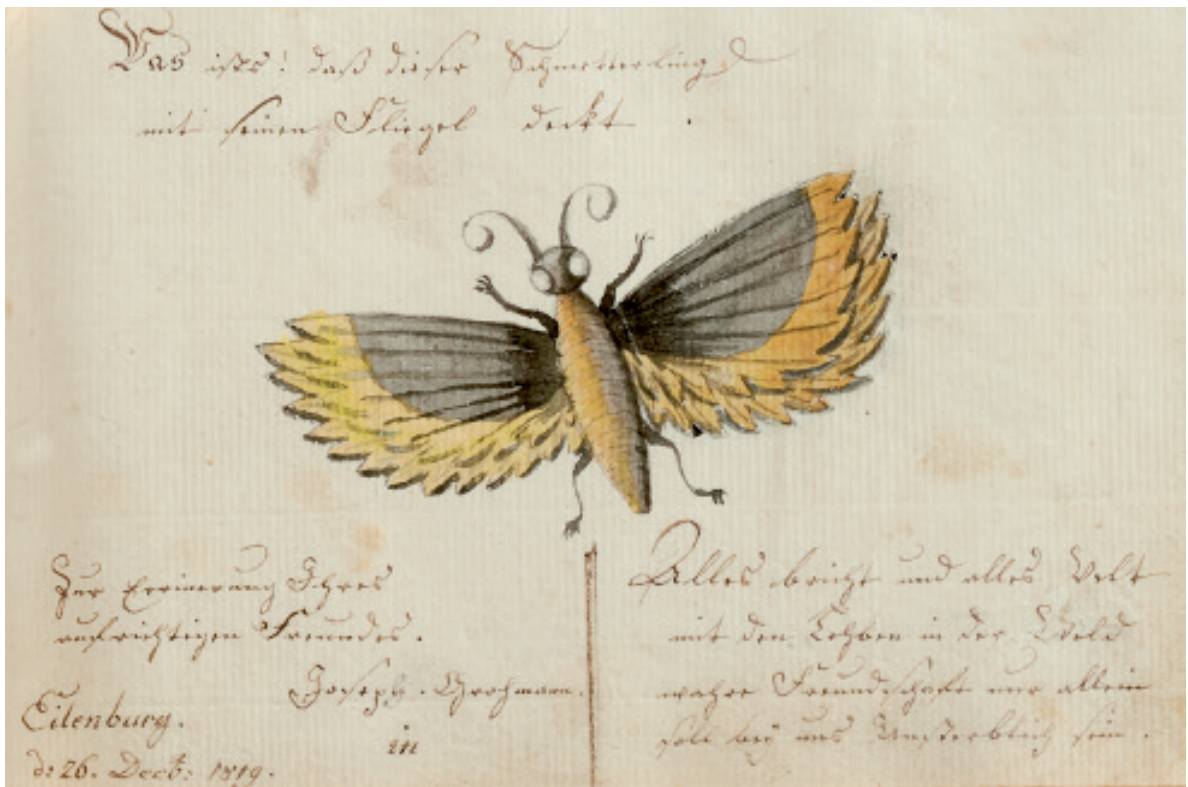 Was ists! daß dieser Schmetterling
mit seinen Fliegel deckt.
Zur Errinerung Ihres
aufrichtigen Freundes.
Joseph. Grohmann.
in
Eilenburg.
d: 26. Decb: 1819.
Alles bricht und alles Velt
mit den Lehben in der Weld
wahre Freundschaft nur allein
soll bey uns Unsterblich sein.